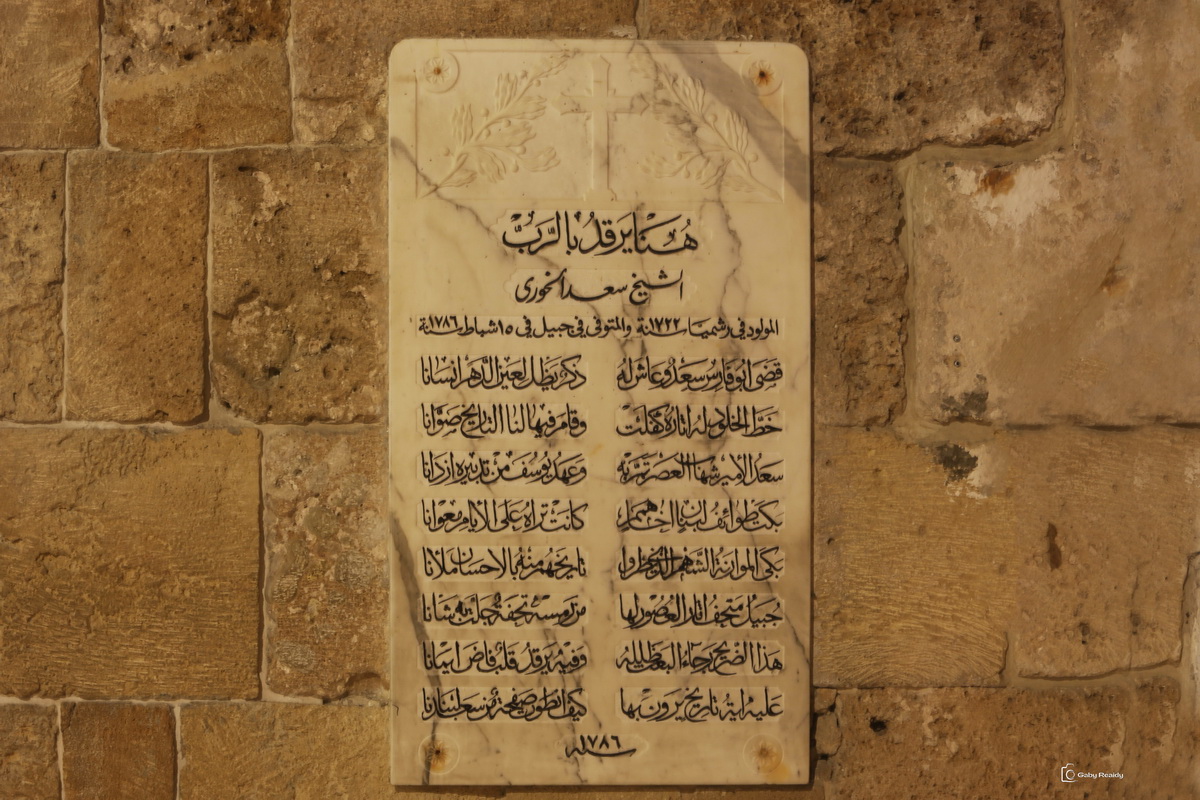 هُنَا يَرقدُ بِالرَّبّ
الشيخ سعد الخوري
المولود في رشميا سنة ١٧٢٢ والمتوفى في جبيل في ١٥ شباط سنة ١٧٨٦
قضى ابو فارس سعد وعاش له ذكر يظل لعين الدهر انسانا
خط الخلود له اثاره كفلت وقام فيها لنا التاريخ صوانا
سعد الأمير شهاب العصر وعهد يوسف من تدبيره ازدانا
بكت طوائف لبنان كانت تراه على الأيام معوانا
بكى الموارنة الشهم الذي تاريخهم منه بالاحسان ملآنا
جبيل متحف اثار العصور لها من رمسه تحفة جلت به شانا
هذا الضريح رجاء البعث وفيه يرقد قلب فاض ايمانا
عليه اية تاريخ يرون بها كيف انطوت صفحة من سعد لبنانا
سنة ١٧٨٦
Gaby Reaidy